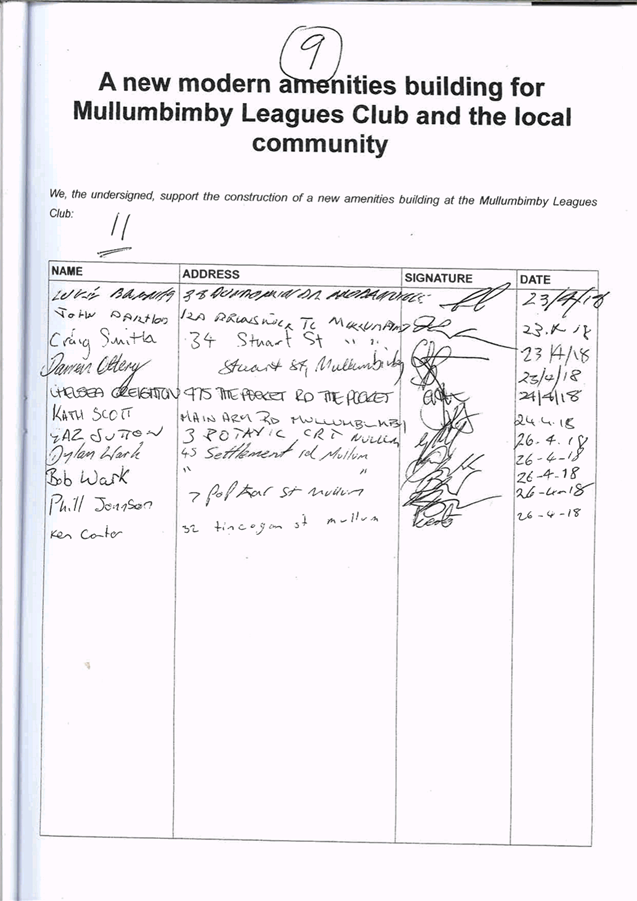 9
A new modern amenities building for
Mullumbimby Leagues Club and the local
community
We, the undersigned, support the construction of a new amenities building at the Mullumbimby Leagues
Club:
11
NAME ADDRESS SIGNATURE DATE
LUKE 23/4/18
JOHN 23.4.18
Craig Smith 34 Stuart St " " 23/4/18
Darren Stuart St, Mullumbimby 23/4/18
CHELSEA CREIGHTON 975 THE POCKET RD THE POCKET 24/4/18
KATH SCOTT MAIN ARM RD MULLUMBIMBY 24.4.18
SUTTON 3 BOTANIC CRT MULLUM 26.4.18
Dylan Wark 45 Settlement rd. Mullum 26-4-18
Bob Wark " " 26-4-18
Phill Jonnson 7 poplar St mullum 26-4-18
Ken 32 tincogan st mullum 26-4-18